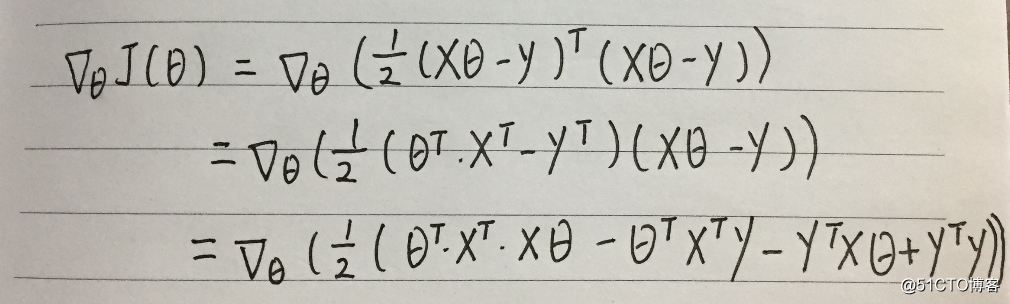 ∇θ J(θ) = ∇θ (½ (Xθ - y)ᵀ (Xθ - y))
= ∇θ (½ (θᵀ·Xᵀ - yᵀ) (Xθ - y))
= ∇θ (½ (θᵀ·Xᵀ·Xθ - θᵀXᵀy - yᵀXθ + yᵀy))
@51CTO博客